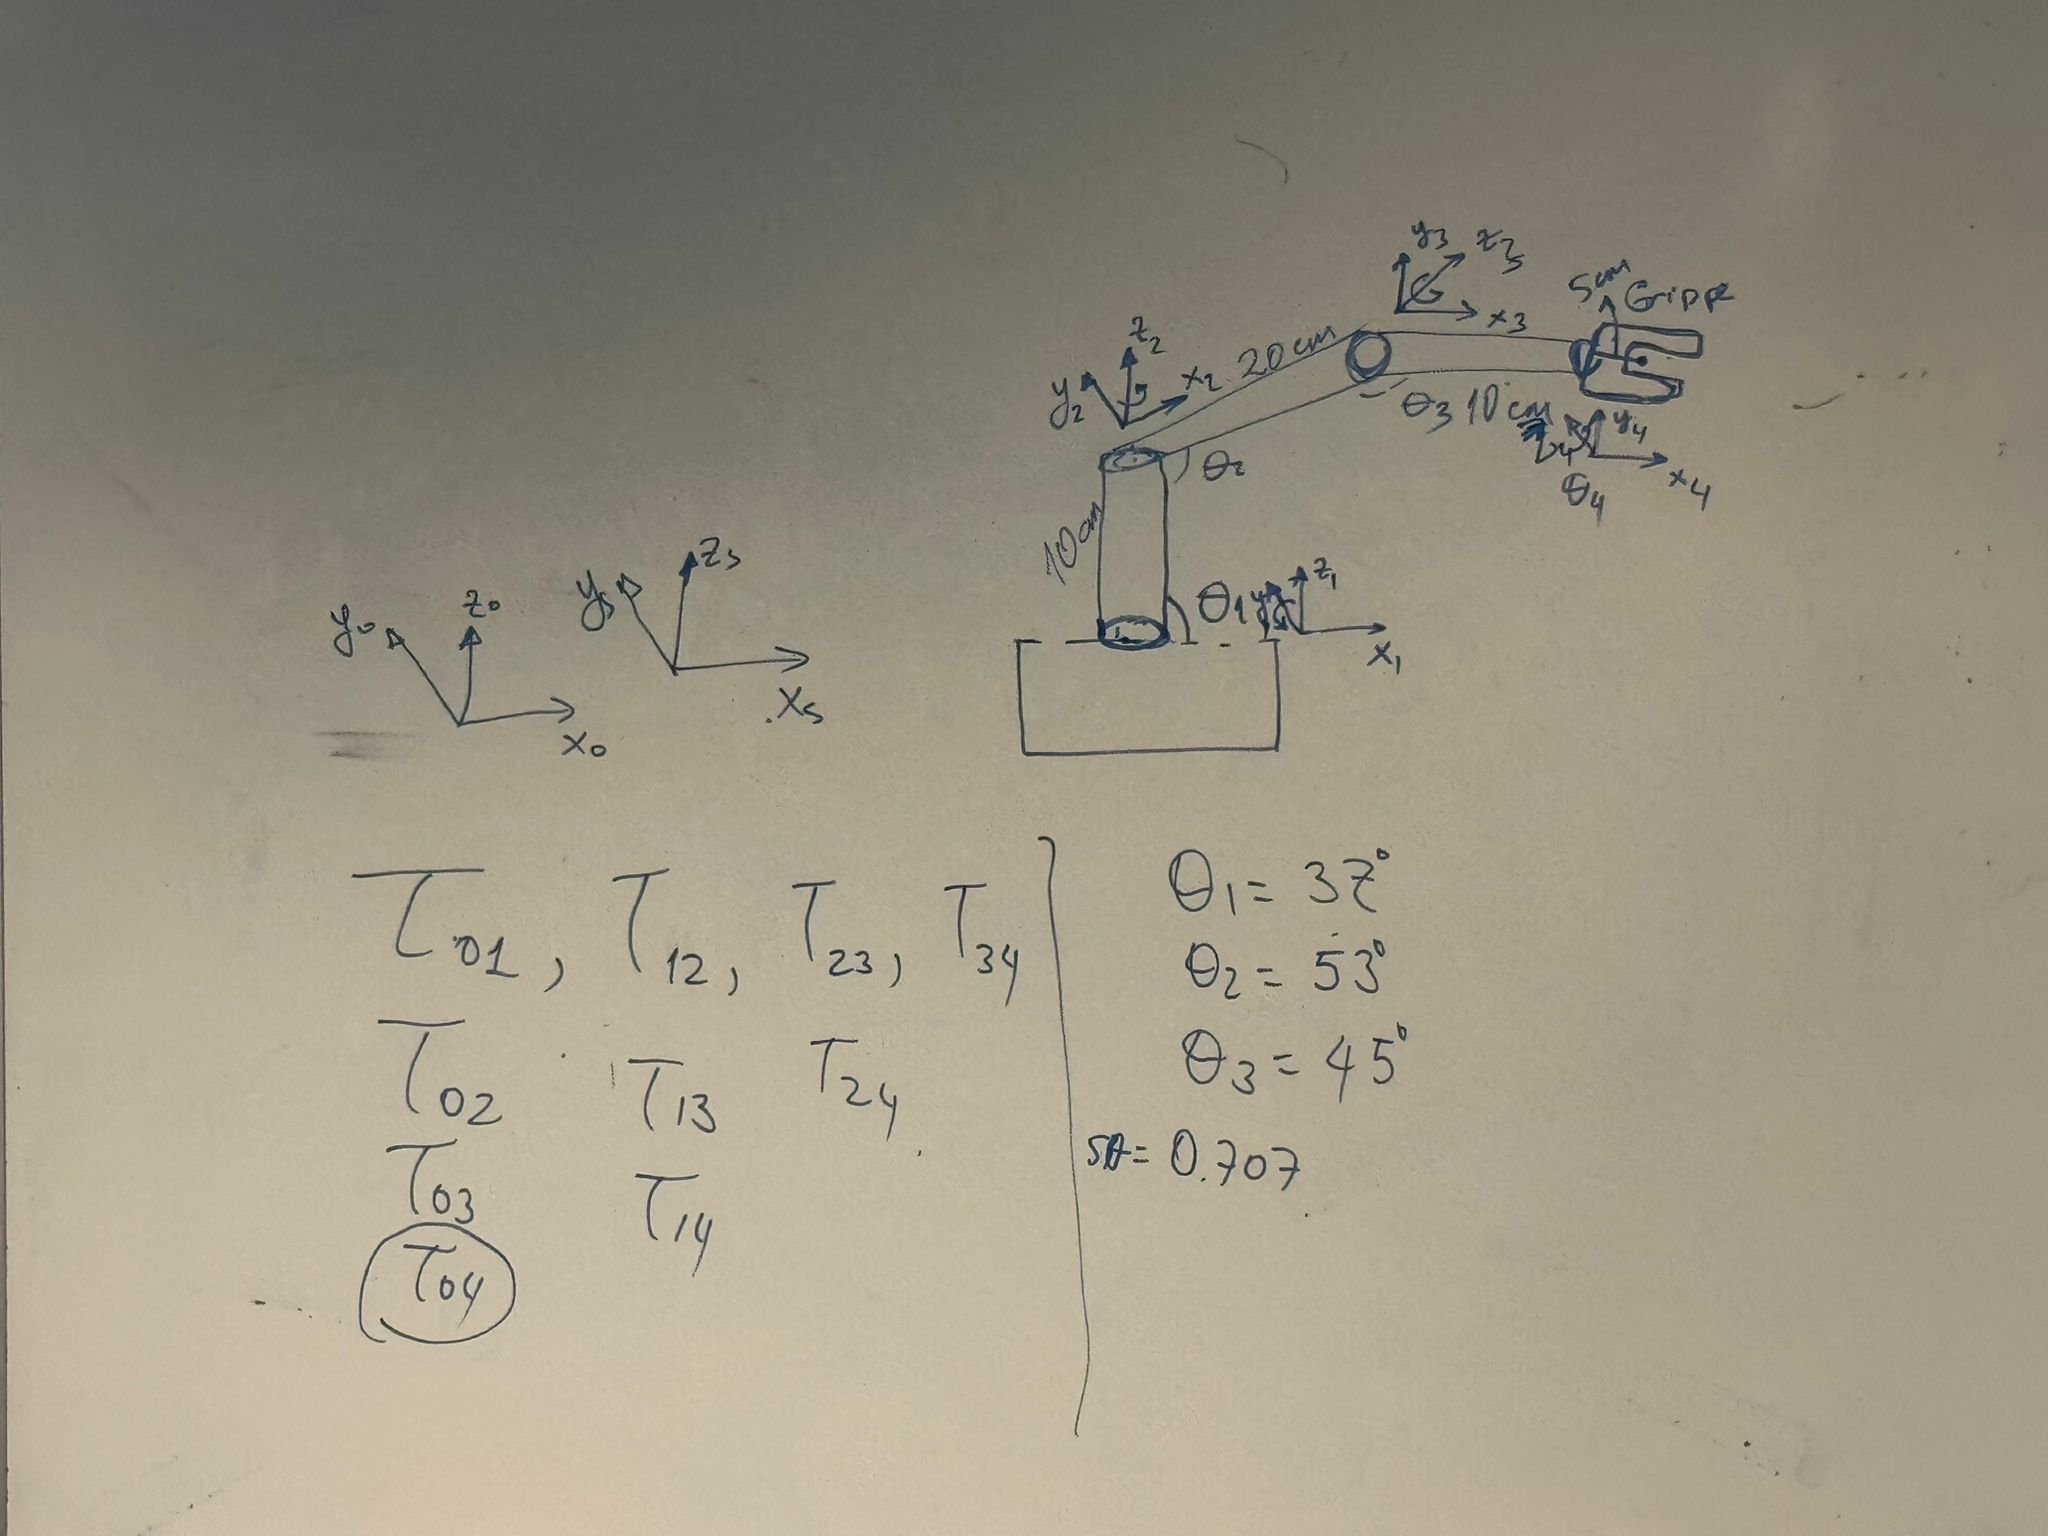 y3 z3
5cm Gripper
x3
z2
y2 x2 20cm
θ3 10cm
y4
x4
θ4
θ2
10cm
z5
y5
x5
z0
y0
x0
θ1
z1
x1
T01, T12, T23, T34
T02 T13 T24
T03 T14
T04
θ1= 37°
θ2= 53°
θ3= 45°
sθ= 0.707